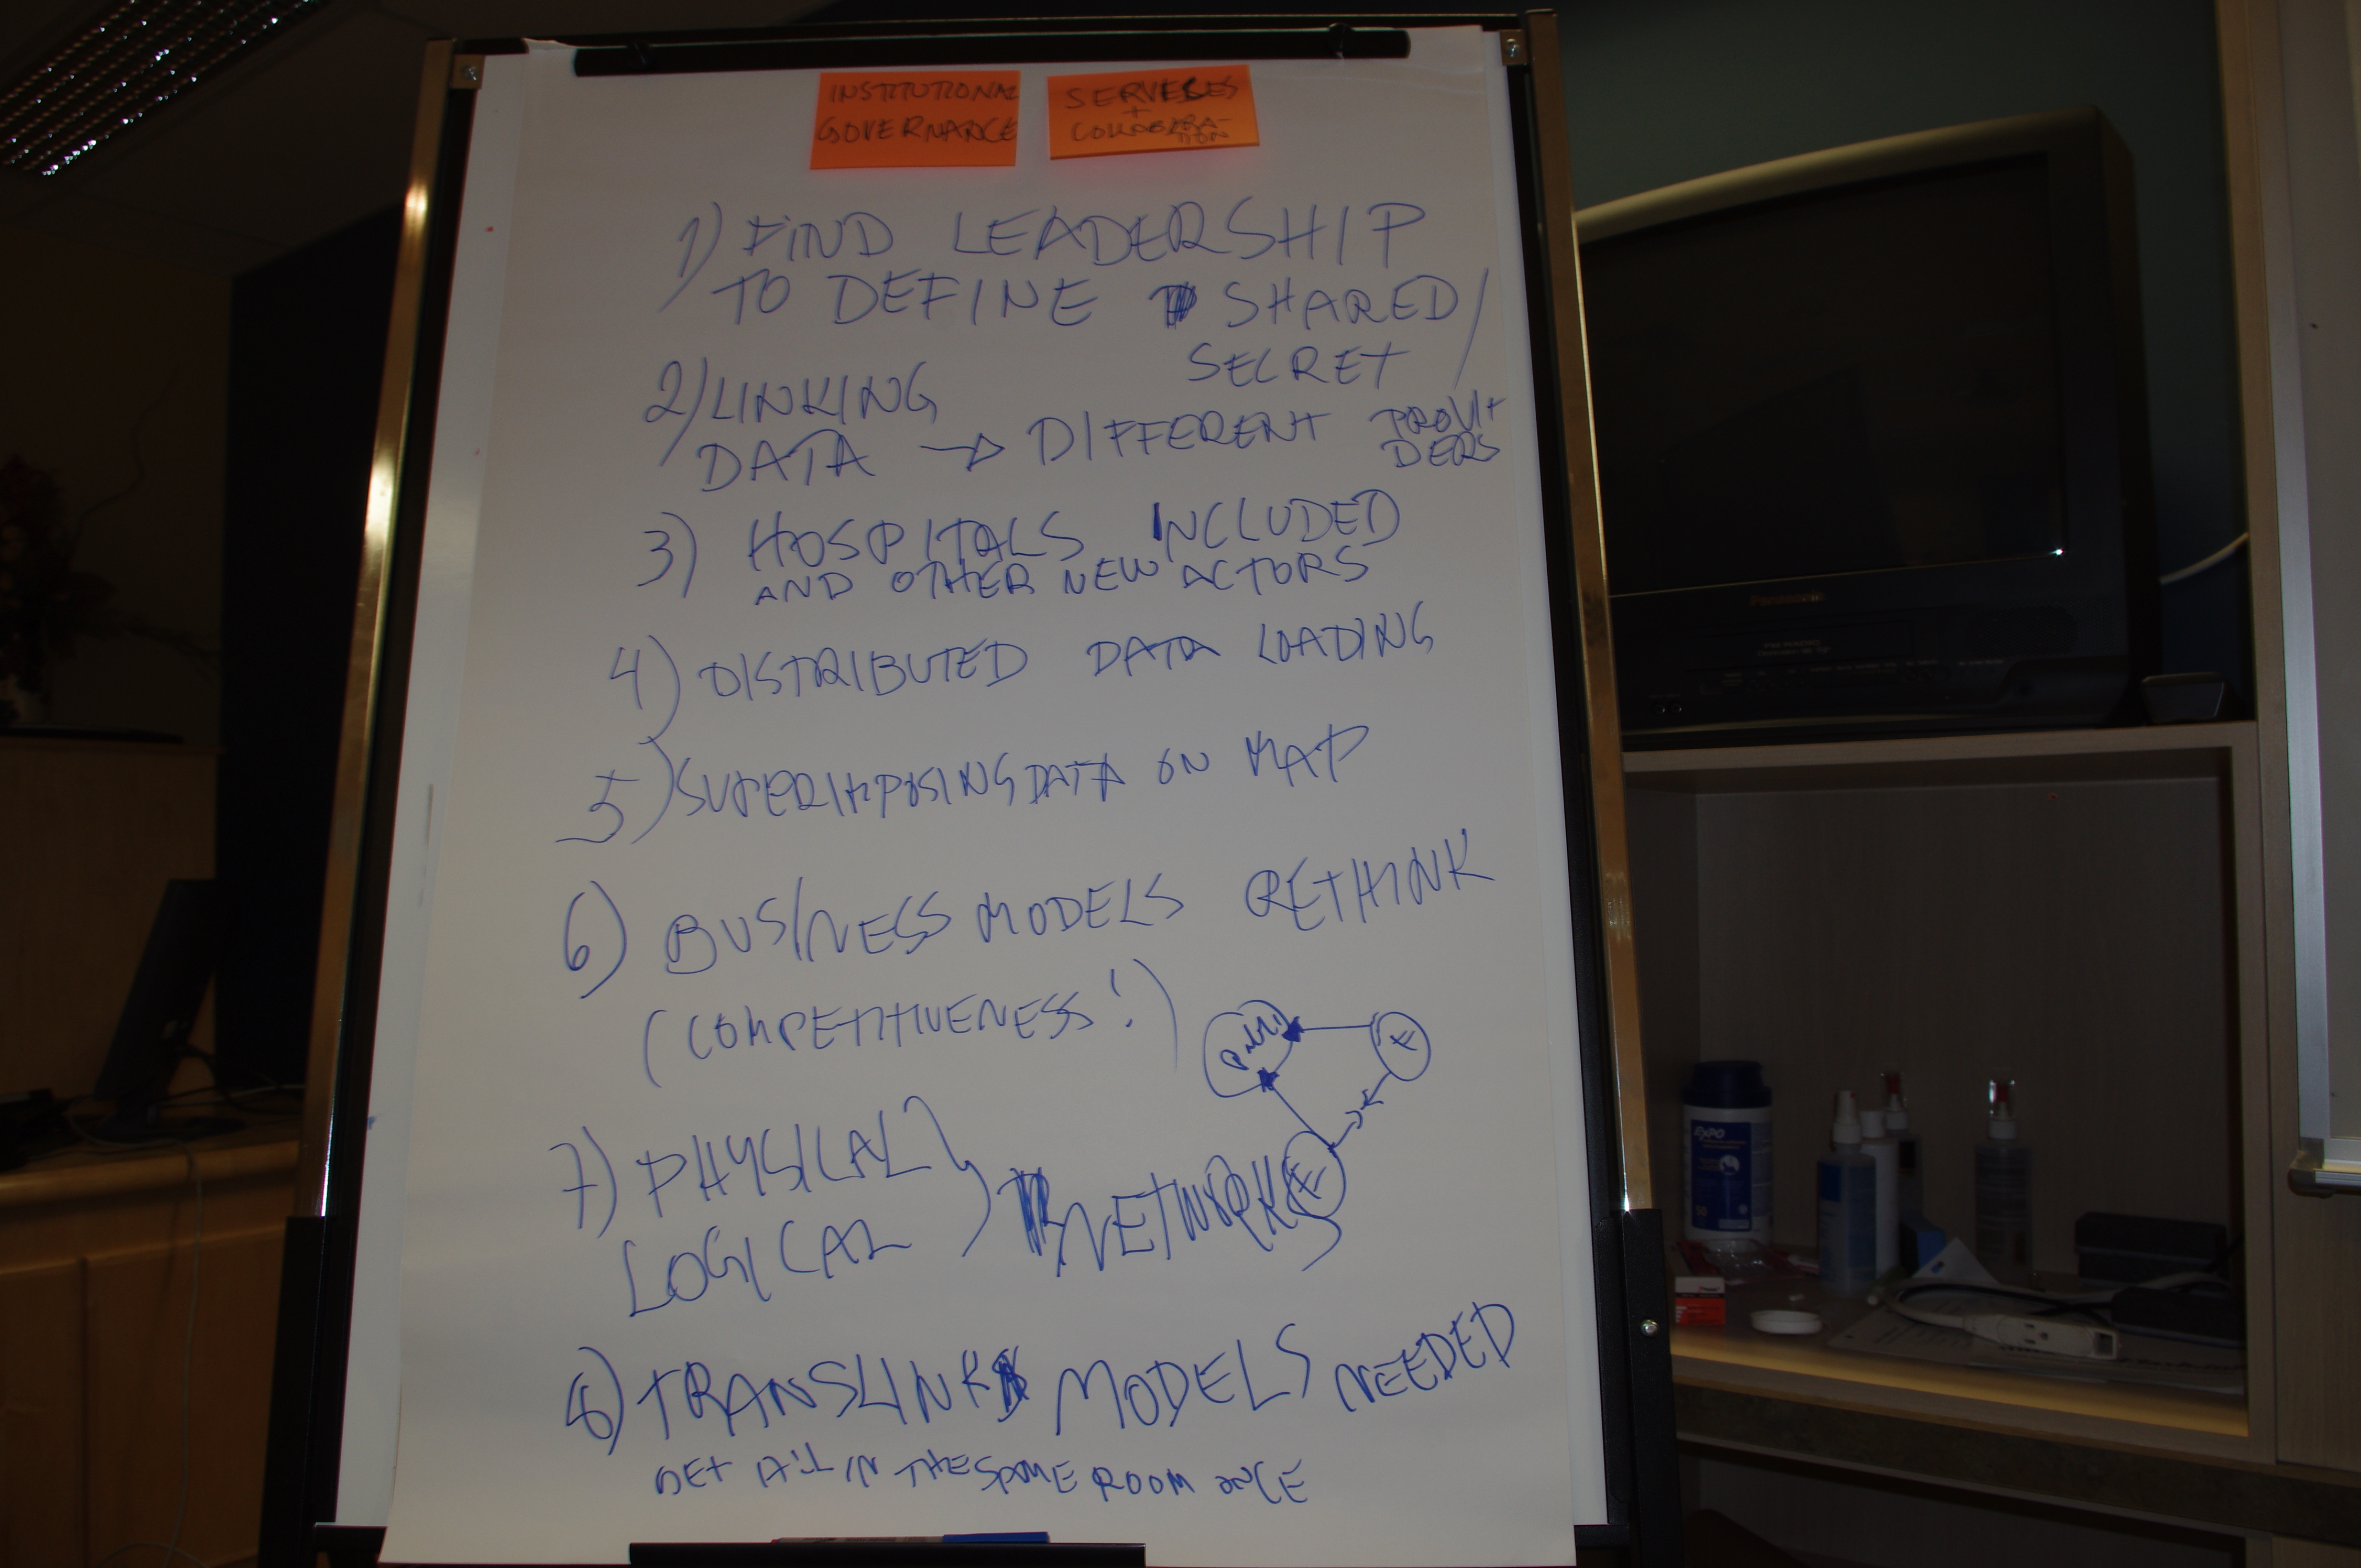 INSTITUTIONAL
GOVERNANCE
SERVICES
+
1) FIND LEADERSHIP
TO DEFINE SHARED/
SECRET
2) LINKING
DATA → DIFFERENT PROVI-
DERS
3) HOSPITALS INCLUDED
AND OTHER NEW ACTORS
4) DISTRIBUTED DATA LOADING
5) SUPERIMPOSING DATA ON MAP
6) BUSINESS MODELS RETHINK
(COMPETITIVENESS!)
7) PHYSICAL
LOGICAL NETWORKS
8) TRANSLINK MODELS NEEDED
GET ALL IN THE SAME ROOM ONCE
Panasonic
EXPO